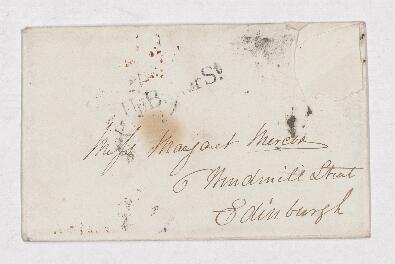 St
Miss Margaret Mercer
6 Windmill Street
Edinburgh